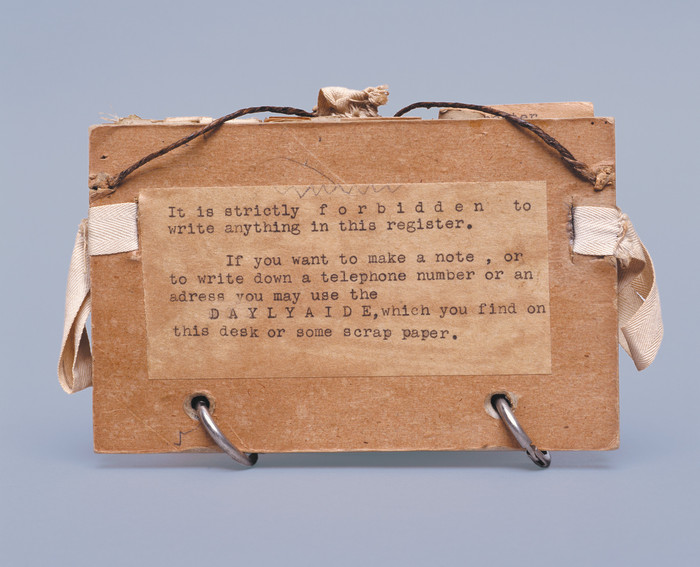 It is strictly f o r b i d d e n to
write anything in this register.
If you want to make a note , or
to write down a telephone number or an
adress you may use the
D A Y L Y A I D E,which you find on
this desk or some scrap paper.